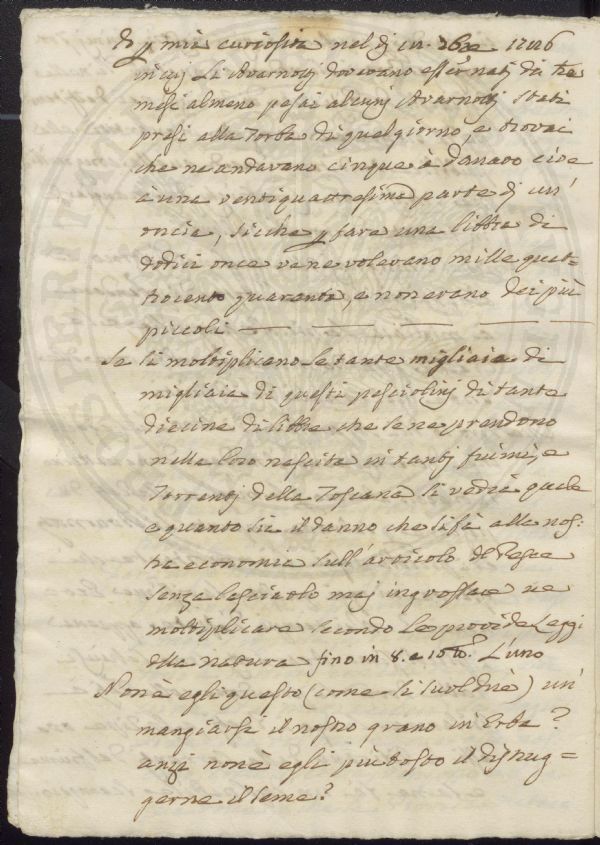 Io p mia curiosità nel dì in. Xbre
in cui li Avarnotti dovevano esser nati di tre
mesi almeno pesai alcunj Avarnotti stati
presi alla Torba di quel giorno, e trovai
che ne andavano cinque à danaro cioè
à una ventiquattresima parte di un'
oncia, sicche p fare una libbra di
dodici once ve ne volevano mille quat=
trocento quaranta, e non erano dei più
piccoli — — — — —
Se si moltiplicano le tante migliaia di
migliaia di questi pesciolinj di tante
diecine di libbre che se ne prendono
nella loro nascita in tantj fiumi, e
Torrentj della Toscana si vedrà quale
e quanto sia il danno che si fà alla nos=
tra economia sull'articolo del Pesce
senza lasciarlo maj ingrossare ne
moltiplicare secondo le provide Leggi
della natura fino in 8. e 10 lb.e L'uno
Non è egli questo (come si suol dire) un'
mangiarsi il nostro grano in Erba?
anzi non è egli più tosto il distrug=
gerne il seme?